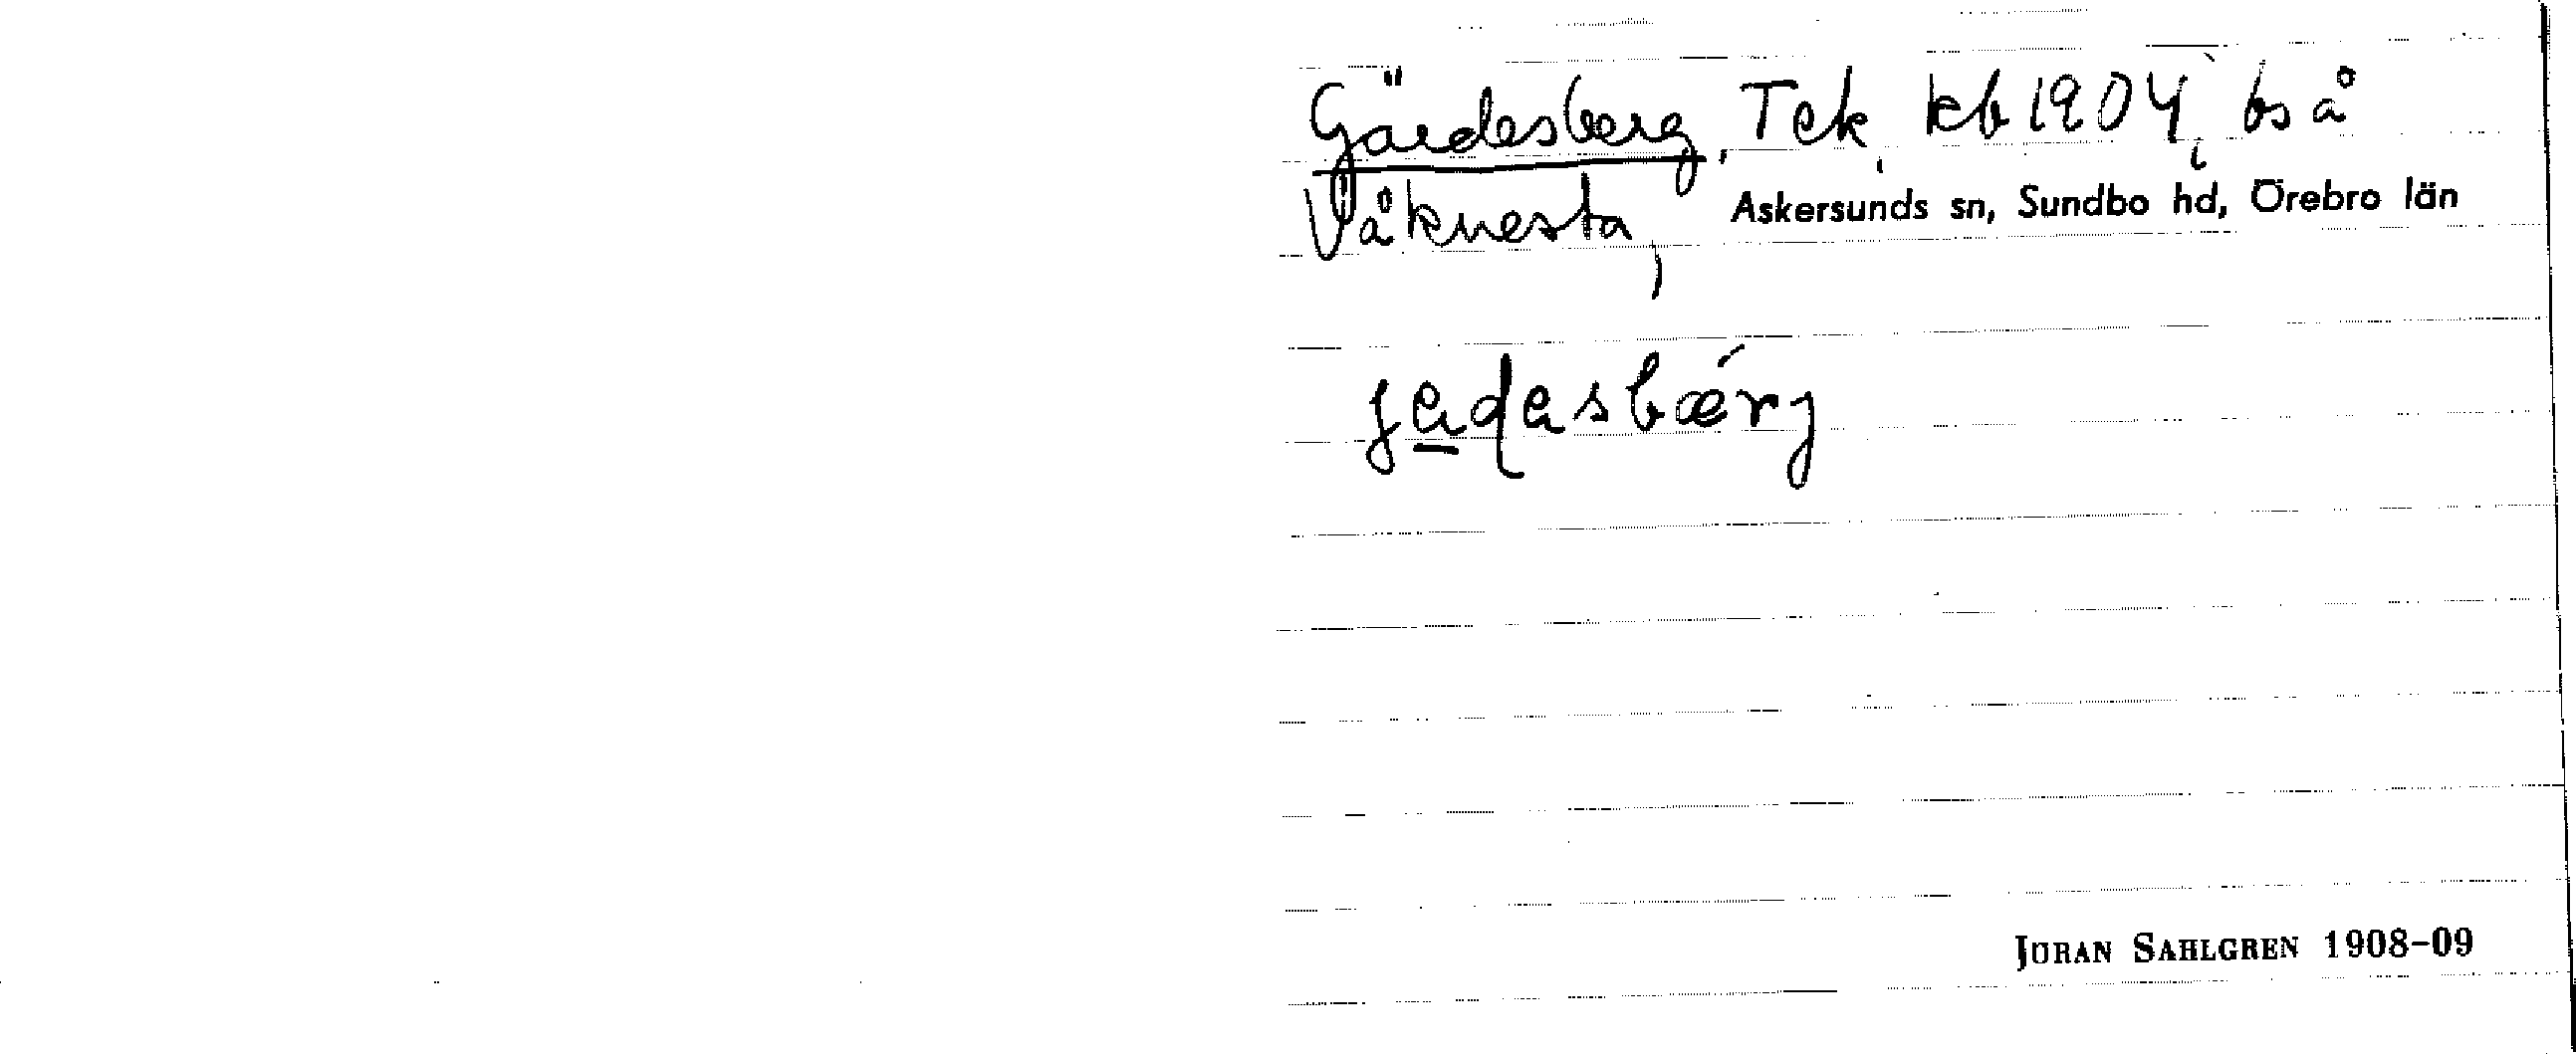 Gärdesberg, Tek, kb 1904, bs å
Våknesta, Askersunds sn, Sundbo hd, Örebro län
jędasbærj
JÖRAN SAHLGREN 1908-09